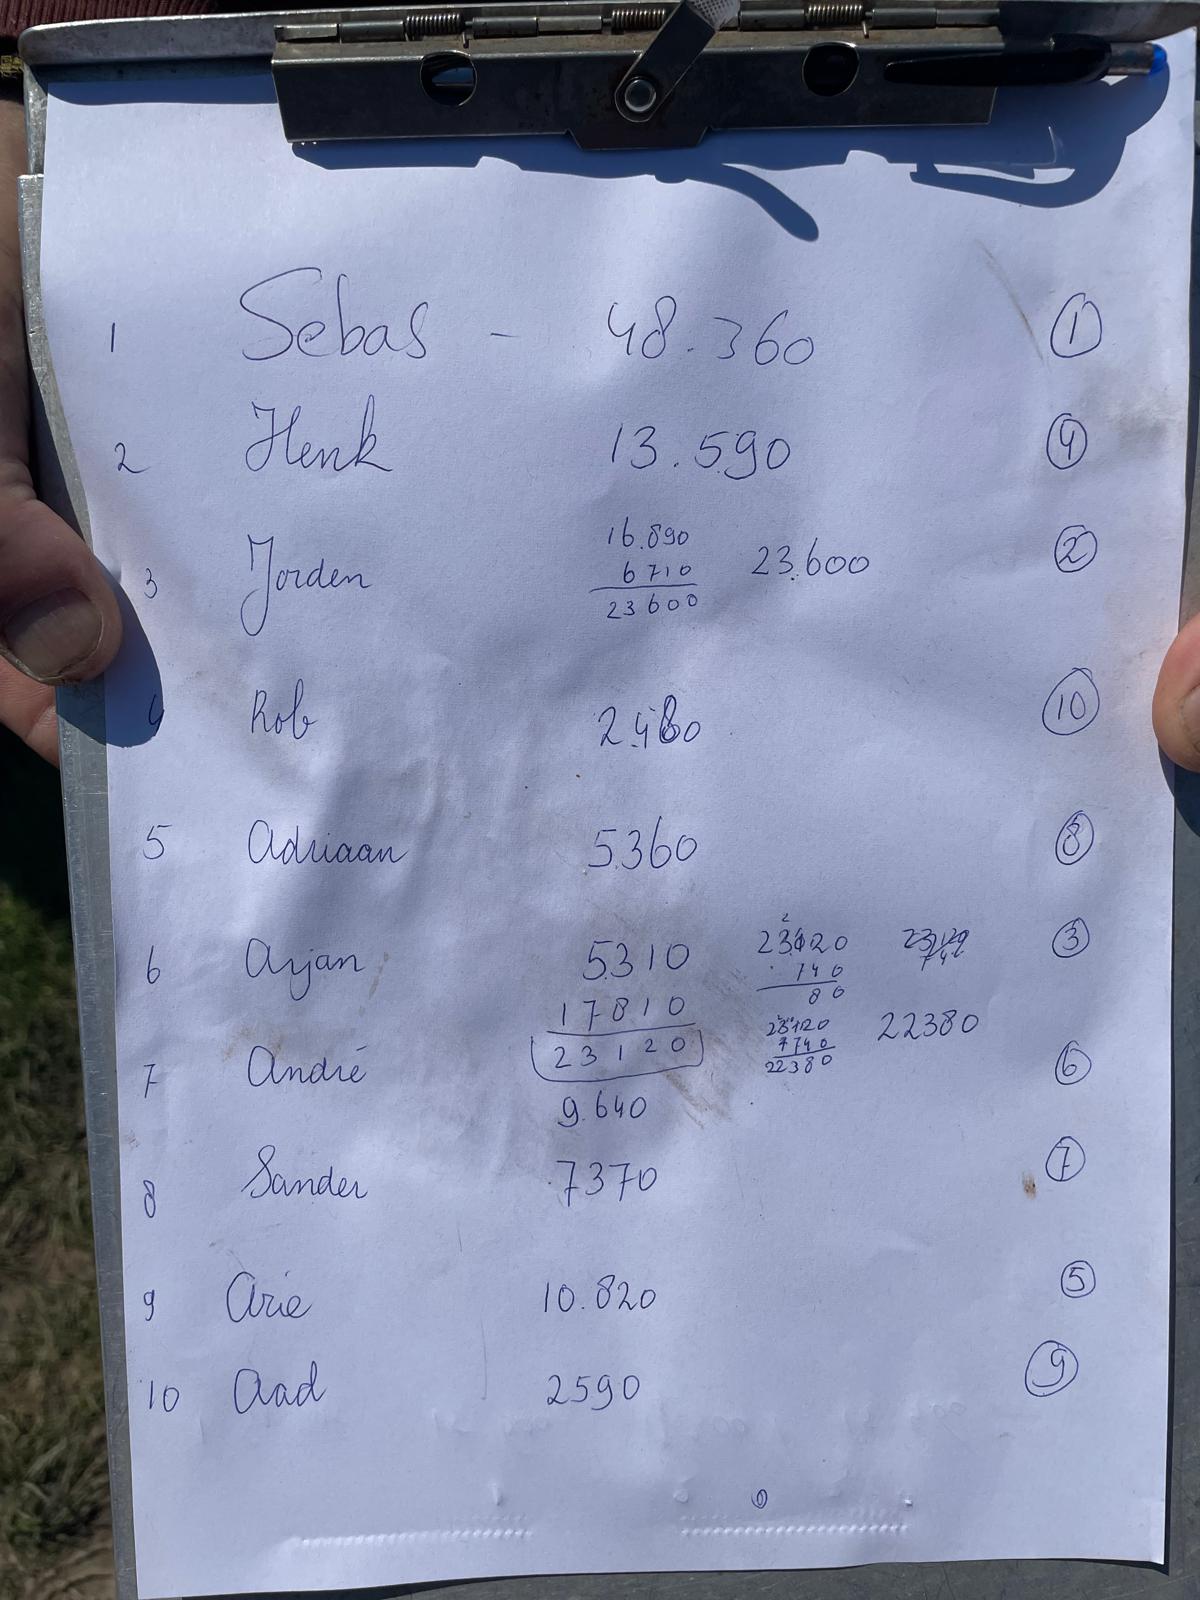 1 Sebas - 48.360 1
2 Henk 13.590 4
16.890
3 Jorden 6710 23.600 2
23600
4 Rob 2.480 10
5 Adriaan 5.360 8
6 Arjan 5310 23.120 3
17810 740
80
23120 23120 22380
7740
22380
7 André 6
9.640
8 Sander 7370 7
9 Arie 10.820 5
10 Aad 2590 9